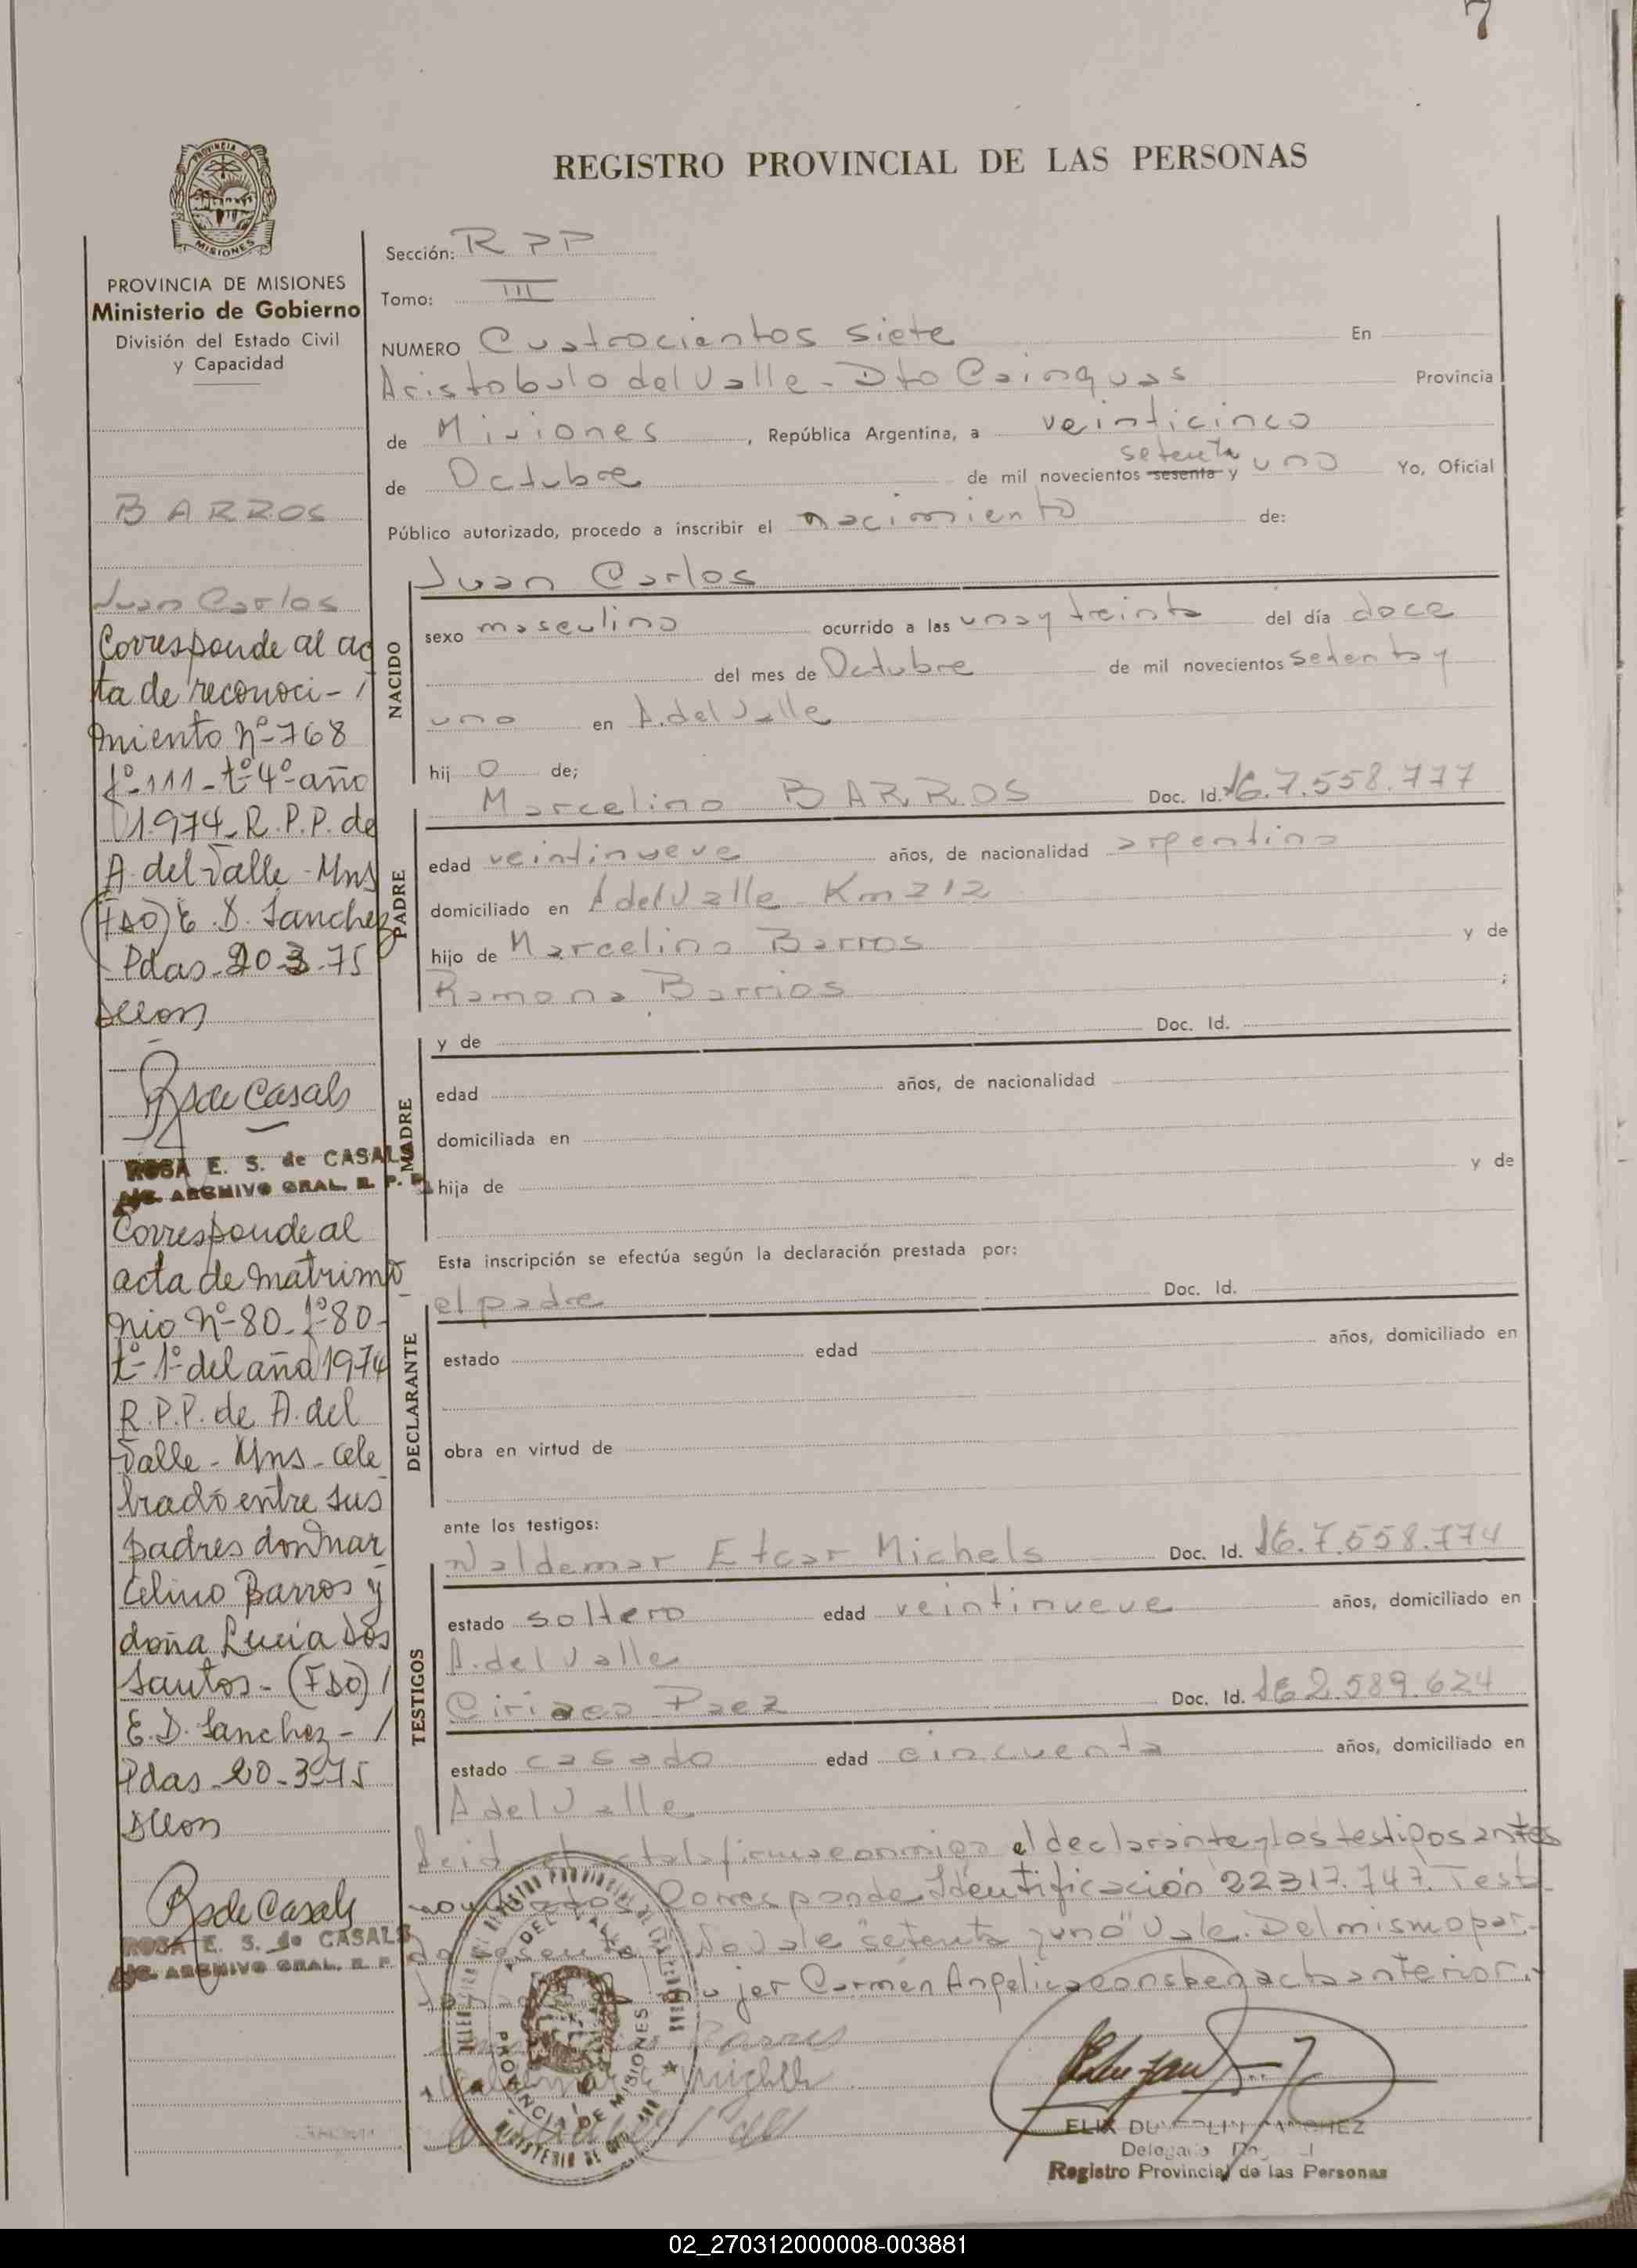 7
PROVINCIA DE
MISIONES
REGISTRO PROVINCIAL DE LAS PERSONAS
PROVINCIA DE MISIONES
Ministerio de Gobierno
División del Estado Civil
y Capacidad
BARROS
Juan Carlos
Corresponde al ac
ta de reconoci- /
miento Nº 768
fº 111 - tº 4º - año
1.974 - R.P.P. de
A. del Valle - Mns
(FDO) E. D. Sanchez
Pdas - 20-3-75
ROSA E. S. de CASALS
ARCHIVO GRAL. R. P. P.
Corresponde al
acta de matrimo
nio Nº 80 - fº 80 -
tº 1º del año 1974
R.P.P. de A. del
Valle - Mns - cele
brado entre sus
padres don Mar
celino Barros y
doña Lucía Dos
Santos - (FDO) /
E. D. Sanchez - /
Pdas - 20-3-75
R S de Casals
ROSA E. S. de CASALS
ARCHIVO GRAL. R. P.
Sección: R P P
Tomo: III
NUMERO Cuatrocientos siete En
Aristobulo del Valle - Dto Cainguas Provincia
de Misiones, República Argentina, a veinticinco
setenta
de Octubre de mil novecientos sesenta y uno Yo, Oficial
Público autorizado, procedo a inscribir el nacimiento de:
Juan Carlos
NACIDO
sexo masculino ocurrido a las una y treinta del día doce
del mes de Octubre de mil novecientos setenta y
uno en A. del Valle
hij o de;
Marcelino BARROS Doc. Id. 7.558.777
PADRE
edad veintinueve años, de nacionalidad argentino
domiciliado en A del Valle - Km 212
hijo de Marcelino Barros y de
Ramona Barrios ;
y de Doc. Id.
MADRE
edad años, de nacionalidad
domiciliada en
hija de y de
Esta inscripción se efectúa según la declaración prestada por:
el padre Doc. Id.
DECLARANTE
estado edad años, domiciliado en
obra en virtud de
ante los testigos:
Waldemar Etcar Michels Doc. Id. 7.558.774
TESTIGOS
estado soltero edad veintinueve años, domiciliado en
A. del Valle
Ciriaco Paez Doc. Id. 2.589.624
estado casado edad cincuenta años, domiciliado en
A del Valle
el declarante y los testigos antes
Corresponde Identificación 22317.747. Testa
do "sesenta" No vale "setenta y uno" Vale. Del mismo par-
jer Carmen Angelica consta en acta anterior.
Barros
PROVINCIA DE MISIONES
SANCHEZ
Registro Provincial de las Personas
02_270312000008-003881